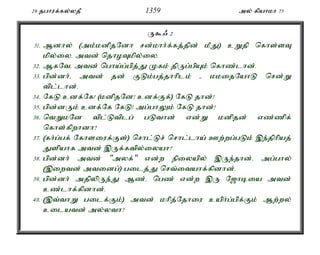 29 தபாரக்கல்லதீ 1359 அல் கியாமா 75
ருகூஃ 2
31. ஆனால் (அம்மனிதனோ சன்மார்க்கத்தின் மீது) உறுதி கொள்ளவு மில்லை. அவன் தொழவுமில்லை.
32. ஆகவே அவன் பொய்ப்பித்து முகம் திருப்பியும் கொண்டான்.
33. பின்னர், அவன் தன் குடும்பத்தாரிடம் - மமதையோடு சென்று விட்டான்.
34. கேடு உனக்கே! (மனிதனே! உனக்குக்) கேடு தான்!
35. பின்னரும் உனக்கே கேடு! அப்பாலும் கேடு தான்!
36. வெறுமனே விட்டுவிடப் படுவான் என்று மனிதன் எண்ணிக் கொள்கிறானா?
37. (கர்ப்பக் கோளறைக்குள்) சொட்டுச் சொட்டாய் ஊற்றப்படும் இந்திரியத் துளியாக அவன் இருக்கவில்லையா?
38. பின்னர் அவன் "அலக்" என்ற நிலையில் இருந்தான். அப்பால் (இறைவன் அவனைப்) படைத்து செவ்வையாக்கினான்.
39. பின்னர் அதிலிருந்து ஆண், பெண் என்ற இரு ஜோடியை அவன் உண்டாக்கினான்.
40. (இவ்வாறு படைக்கும்) அவன் மரித்தோரை உயிர்ப்பிக்கும் ஆற்றல் உடையவன் அல்லவா?